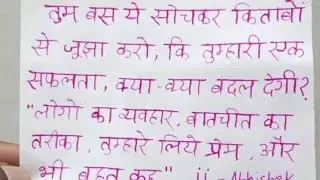 तुम बस ये सोचकर किताबों
से जूझा करो, कि तुम्हारी एक
सफलता, क्या-क्या बदल देगी?
"लोगो का व्यवहार, बातचीत का
तरीका, तुम्हारे लिये प्रेम, और
भी बहुत कुछ" ¡¡ - Abhishek